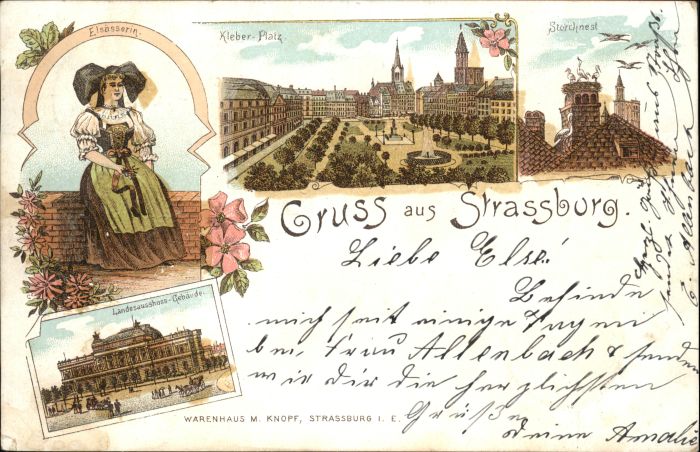 Elsässerin.
Kleber-Platz
Storchnest
Gruss aus Strassburg.
Liebe Else!
Befinde
mich seit einige Tagen
bei Frau Allenbach & senden
wir dir die herzlichsten
Grüße
Deine Amalie
Landesausshuss-Gebäude.
WARENHAUS M. KNOPF, STRASSBURG I. E.